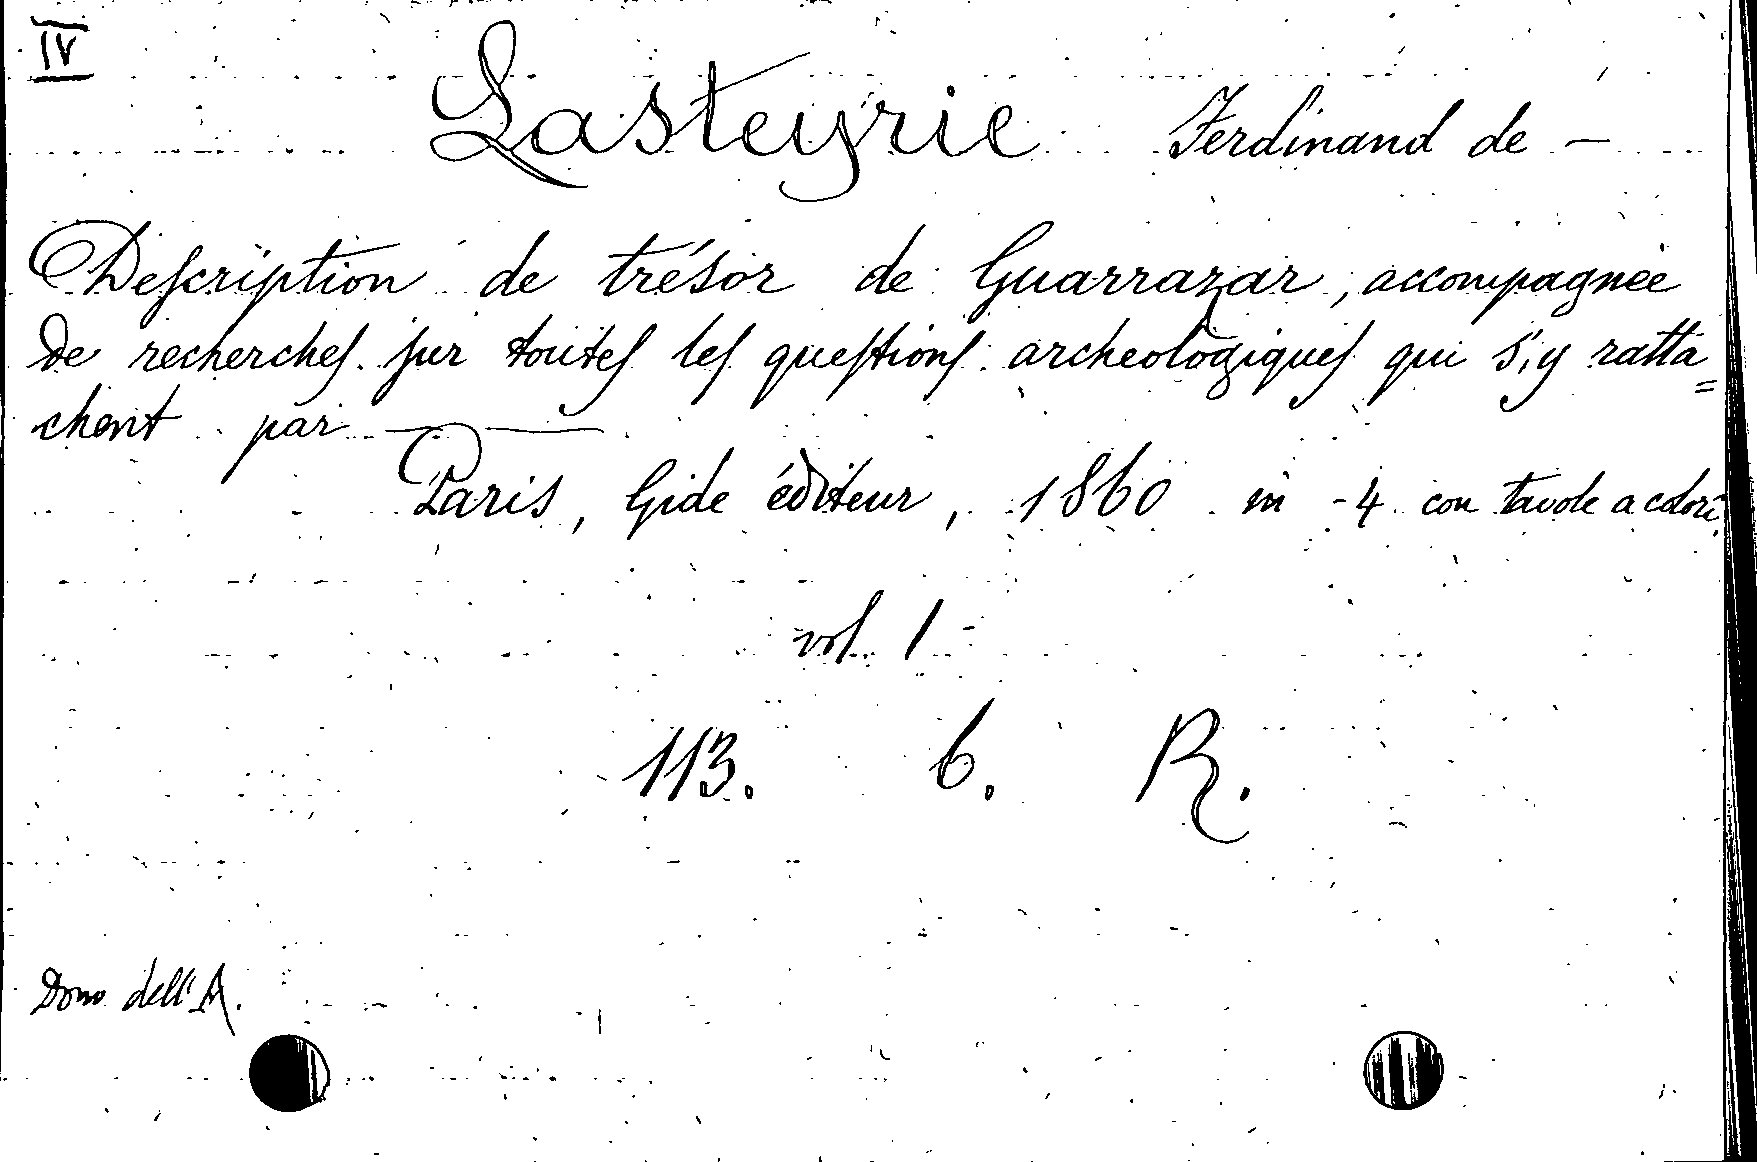 IV
Lasteyrie Ferdinand de —
Description de trésor de Guarrazar, accompagnée
de recherches sur toutes les questions archeologiques qui s'y ratta=
chent par ———
Paris, Gide éditeur, 1860 in-4 con tavole a colori.
vol. 1
113. 6. R.
Dono dell'A.